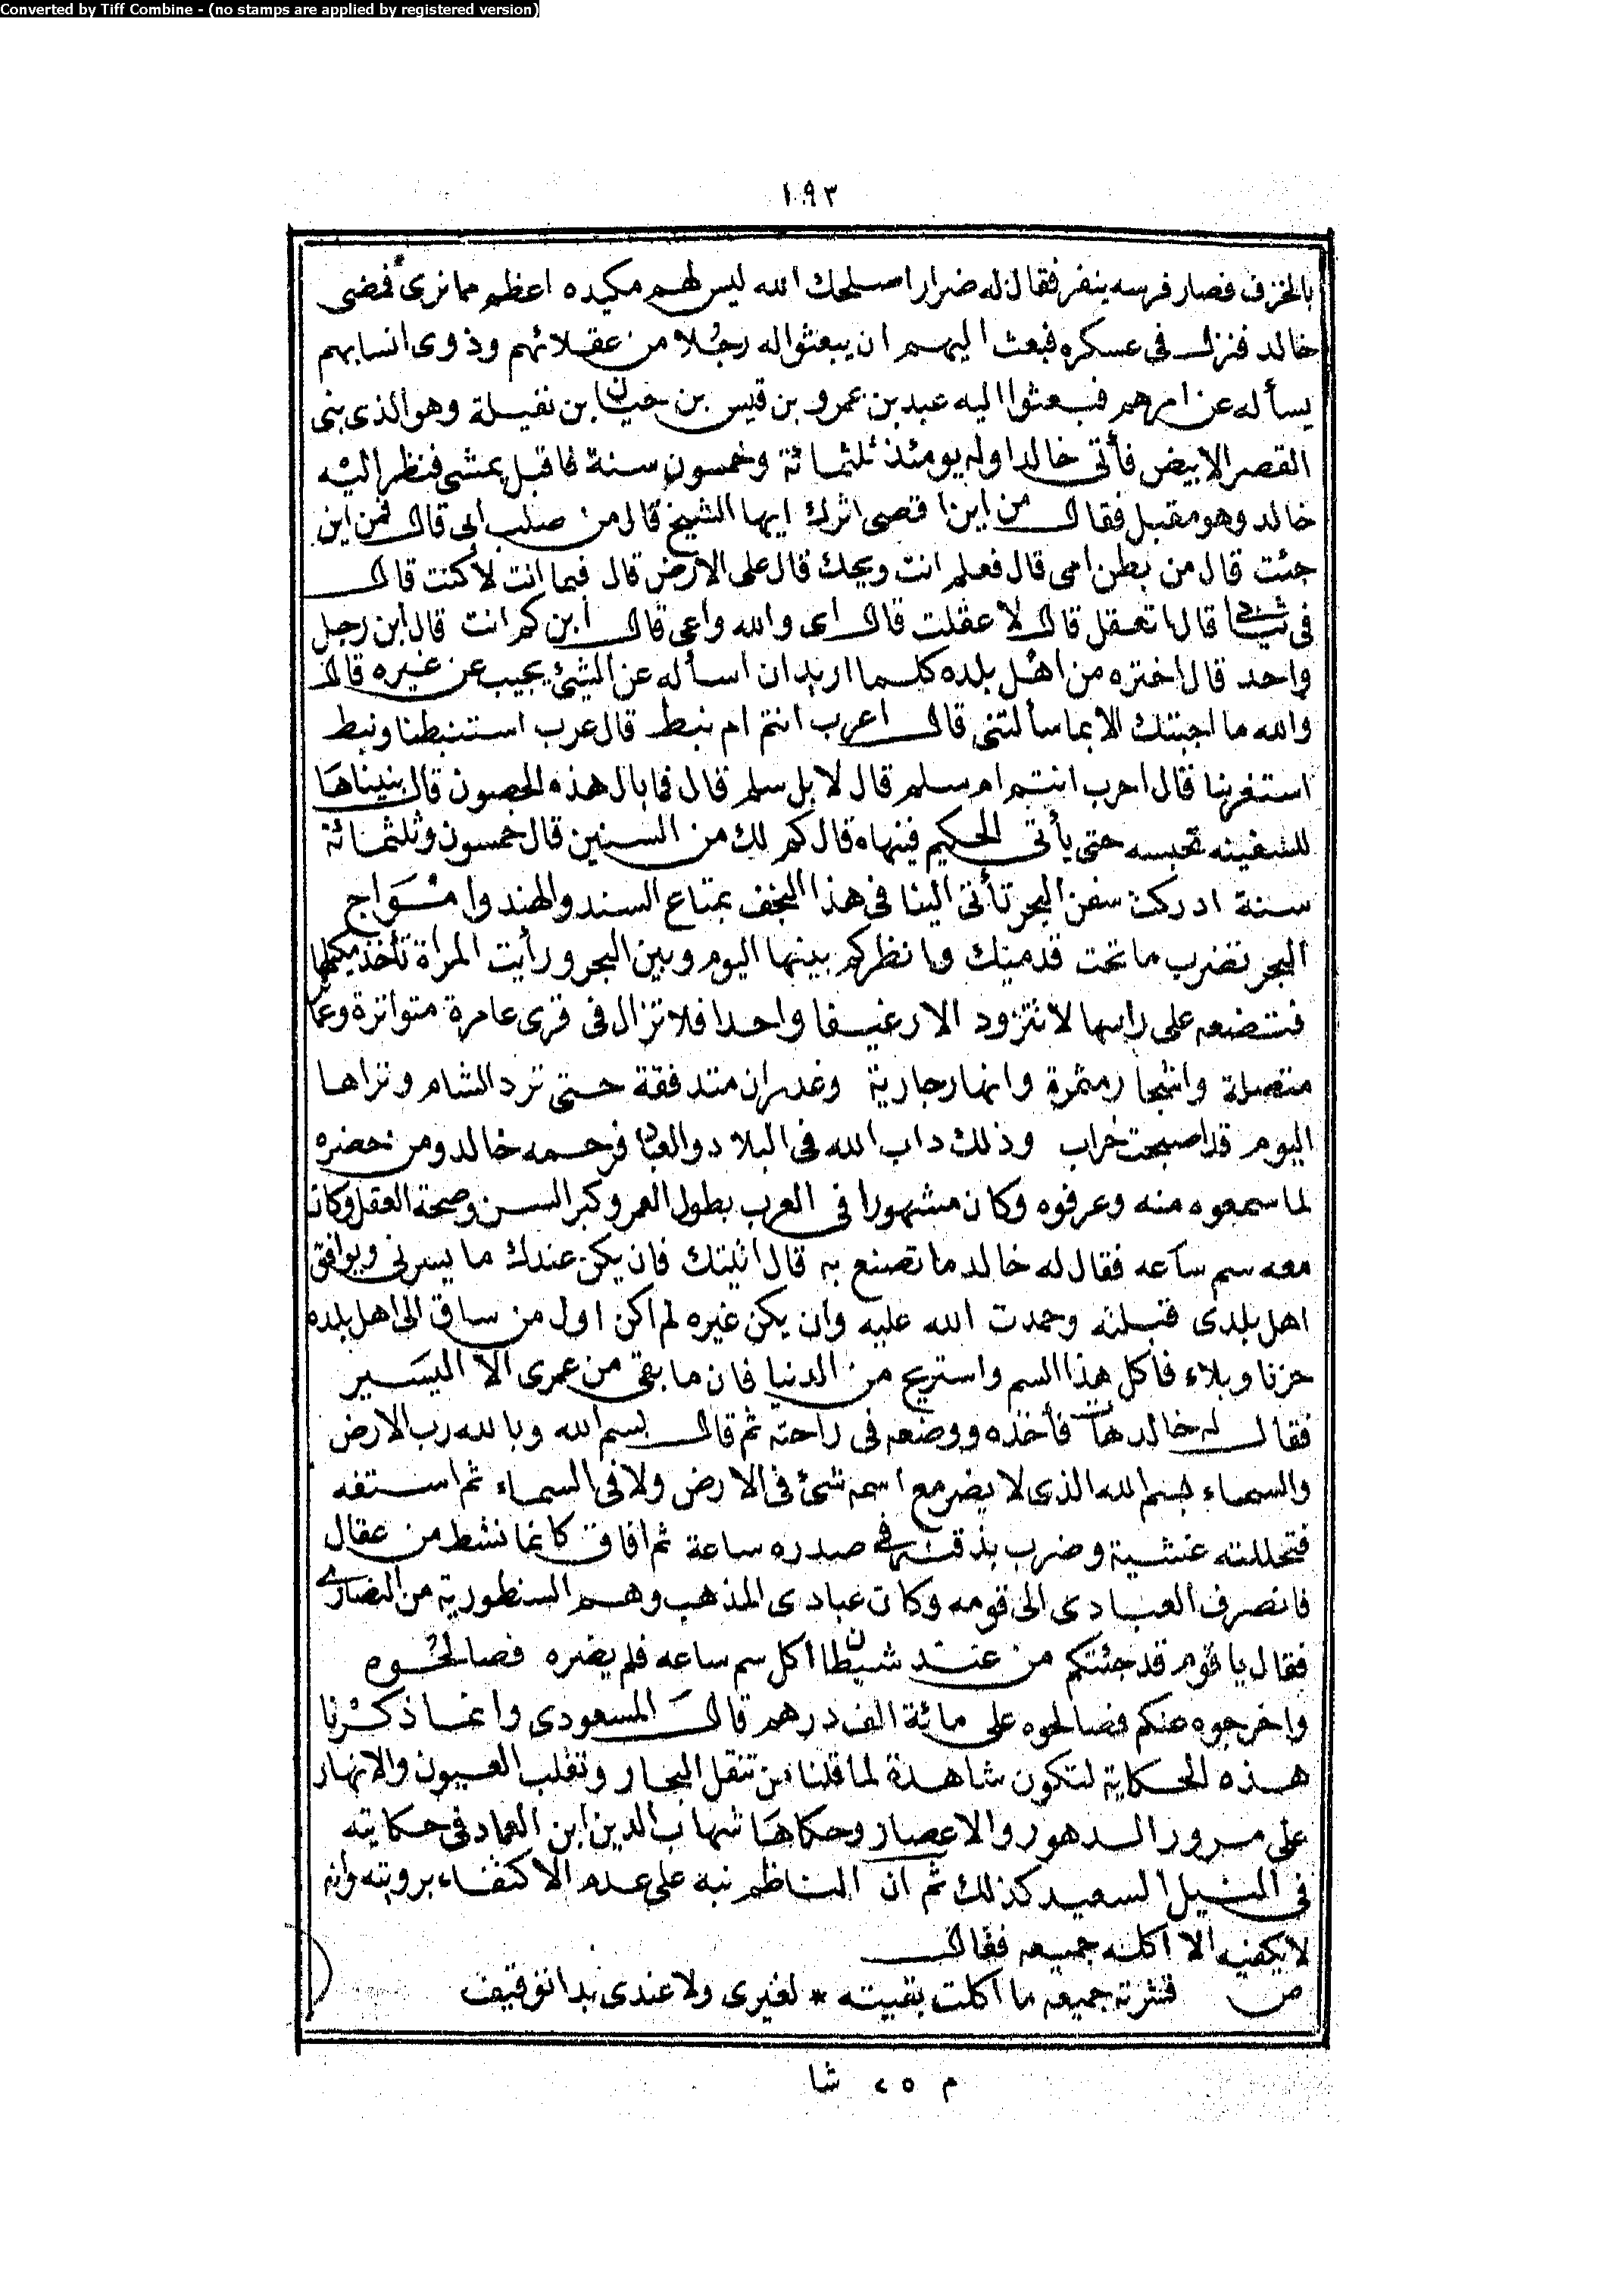 Converted by Tiff Combine - (no stamps are applied by registered version)
١٩٣
بالخزف فصار فرسه ينفر فقال له ضرار اصلحك الله ليس لهم مكيده اعظم مما نرى فمضى
خالد فنزل فى عسكره فبعث اليهم ان يبعثوا له رجلا من عقلائهم وذوى انسابهم
يسأله عن امرهم فبعثوا اليه عبد بن عمرو بن قيس بن حيان ابن نفيلة وهو الذى بنى
القصر الابيض فأتى خالدا وله يومئذ ثلثمائة وخمسون سنة فاقبل يمشى فنظر اليه
خالد وهو مقبل فقال من اين اقصى اثرك ايها الشيخ قال من صلب ابى قال فمن اين
جئت قال من بطن امى قال فعلم انت ويحك قال على الارض قال فيما انت لا كنت قال
فى ثيابى قال اتعقل قال لا عقلت قال اى والله واعى قال ابن كم انت قال ابن رجل
واحد قال اختره من اهل بلده كلما اريد ان اسأله عن الشئ يجيب عن غيره قال
والله ما اجبتك الا بما سألتنى قال اعرب انتم ام نبط قال عرب استنبطنا ونبط
استعربنا قال احرب انتم ام سلم قال لا بل سلم قال فما بال هذه الحصون قال بنيناها
للسفينه تحبسه حتى يأتى الحكيم فينهاه قال كم لك من السنين قال خمسون وثلثمائة
سنة ادركت سفن البحر تأتى الينا فى هذا النجف بمتاع السند والهند وامواج
البحر تضرب ما تحت قدميك وانظركم بينها اليوم وبين البحر ورأيت المراة تأخذ مكتلها
فتضعه على راسها لا تتزود الا رغيفا واحدا فلا تزال فى قرى عامرة متواترة وعمائر
متصلة واشجار مثمرة وانهار جارية وغدران متدفقة حتى ترد الشام ونراها
اليوم قد اصبحت خراب وذلك داب الله فى البلاد والعباد فرحمه خالد ومن حضره
لما سمعوه منه وعرفوه وكان مشهورا فى العرب بطول العمر وكبر السن وصحة العقل وكان
معه سم ساعه فقال له خالد ما تصنع به قال اتيتك فان يكن عندك ما يسرنى ويوافق
اهل بلدى قبلته وحمدت الله عليه وان يكن غيره لم اكن اول من ساق الى اهل بلده
حزنا وبلاء فآكل هذا السم واستريح من الدنيا فان ما بقى من عمرى الا اليسير
فقال له خالد هات فأخذه ووضعه فى راحته ثم قال بسم الله وبالله رب الارض
والسماء بسم الله الذى لا يضر مع اسمه شئ فى الارض ولا فى السماء ثم استفه
فتجللته غشية وضرب بذقنه فى صدره ساعة ثم افاق كانما نشط من عقال
فانصرف العبادى الى قومه وكان عبادى المذهب وهم السنطورية من النصارى
فقال يا قوم قد جئتكم من عند شيطان اكل سم ساعه فلم يضره فصالحوه
واخرجوه عنكم فصالحوه على مائة الف درهم قال المسعودى وانما ذكرنا
هذه الحكاية لتكون شاهدة لما قلنا من تنقل البحار وتقلب العيون والانهار
على مرور الدهور والاعصار وحكاها شهاب الدين ابن العماد فى حكايته
فى النيل السعيد كذلك ثم ان الناظم نبه على عدم الاكتفاء برويته وانه
لا يكفيه الا اكله جميعه فقال
ص فنثرته جميعه ما اكلت بقيته * لغيرى ولا عندى بدا توقيف
م ٢٥ شا